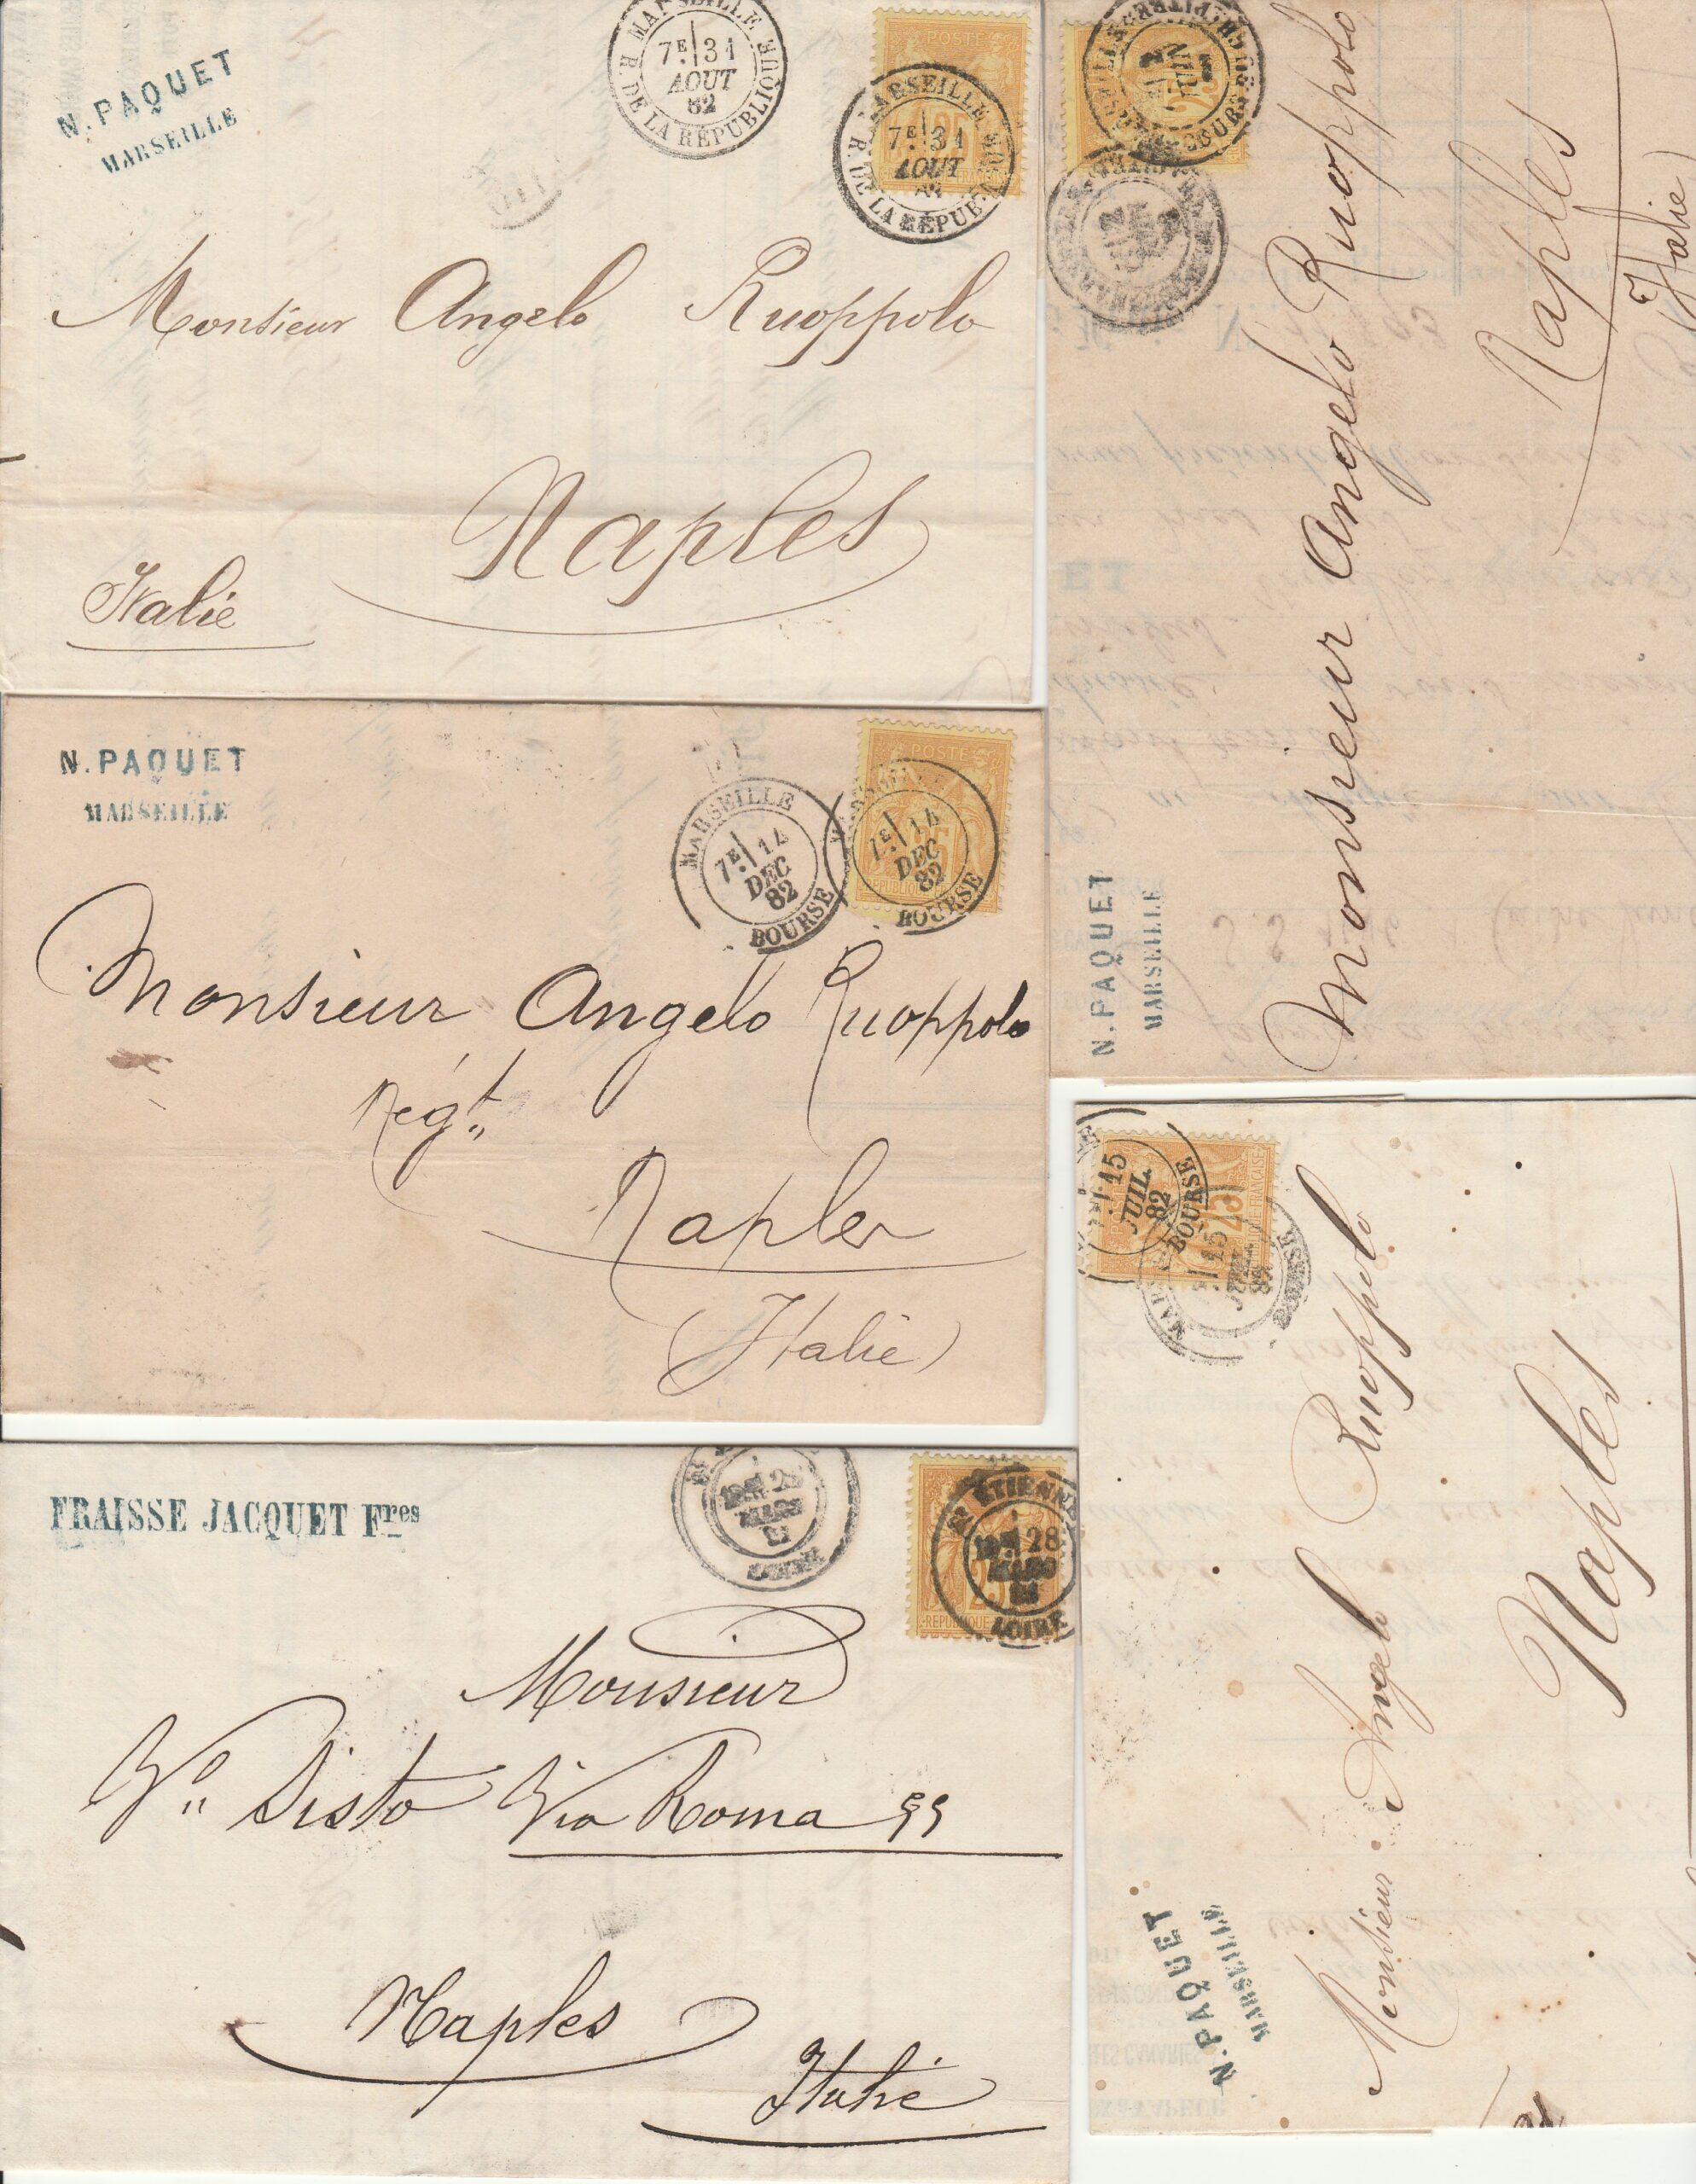 N. PAQUET
MARSEILLE
MARSEILLE
7E 31
AOUT
82
R. DE LA RÉPUBLIQUE
POSTE
25
MARSEILLE
7E 31
AOUT
R. DE LA RÉPUBLIQUE
Monsieur Angelo Ruoppolo
Naples
Italie
N. PAQUET
MARSEILLE
MARSEILLE
7E 14
DEC
82
BOURSE
POSTE
25
7E 14
DEC
82
BOURSE
Monsieur Angelo Ruoppolo
Négt
Naples
(Italie)
FRAISSE JACQUET Fres
28
MARS
LOIRE
ST ETIENNE
28
MARS
LOIRE
25
REPUBLIQUE
Monsieur
Vo Sisto Via Roma 99
Naples
Italie
2
JUIN
25
N. PAQUET
MARSEILLE
Monsieur Angelo Ruoppolo
Naples
(Italie)
15
JUIL.
82
BOURSE
25
REPUBLIQUE FRANÇAISE
15
JUIL
82
BOURSE
N. PAQUET
MARSEILLE
Monsieur Angelo Ruoppolo
Naples